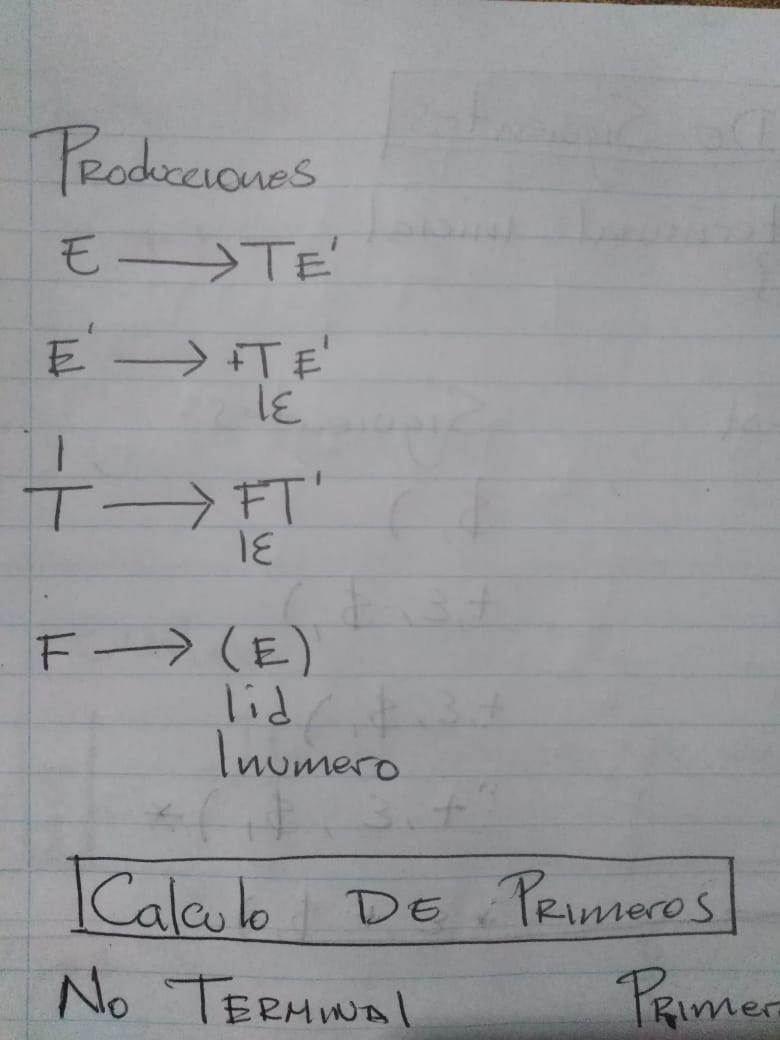 Producciones
E → TE'
E' → +TE'
|ε
T' → FT'
|ε
F → (E)
|id
|numero
Calculo DE Primeros
No TERMINAL Primer